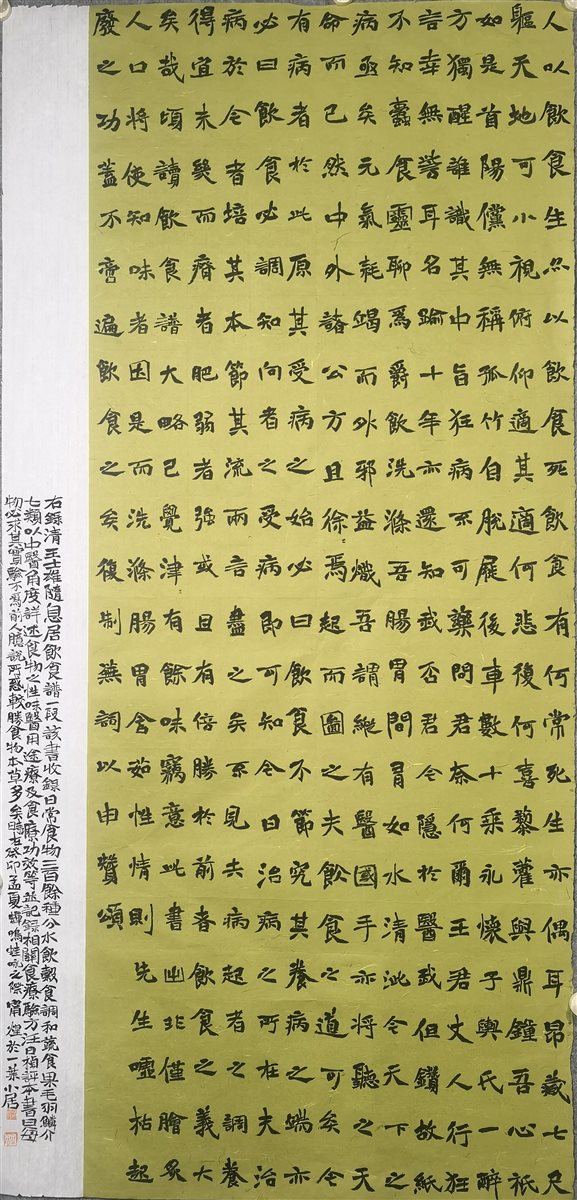 人以飲食生亦以飲食死飲食有何常死生亦偶耳昂藏七尺
軀天地可小視俯仰適其適何悲復何喜藜藿與鼎鐘吾心祇
如是首陽儻無稱孤竹自脫屣後車數十乘永懷子輿氏一醉
方獨醒誰識其中旨狂病不可藥問君奈何爾王君丈人行狂
言幸無訾耳名踰十年亦還知我否君今隱於醫我但鑽故紙
不知蠹食靈聊為爵飲洗滌吾腸胃間胃如水清泚今天下之
病亟矣元氣耗竭而外邪益熾吾謂縱有醫國手亦將聽之天
命而已然中外諸公方且徐焉起而圖之夫飲食之道可矣今
有病者於此原其受病之始必曰飲食不節究其養病之端亦
必曰飲食必調知向者之受病即可知今日治病之所在夫治
病於今者培其本節其流兩言盡之矣不見夫病起者之調養
得宜未幾而瘠者肥弱者強或且有倍勝於前者飲食之義大
矣哉頃讀飲食譜大略已覺津有餘味竊意此書出非僅膾炙
人口將使知味者因是而洗滌腸胃含茹性情則先生噓枯起
廢之功蓋不啻遍飲食之矣復制蕪詞以申贊頌
右錄清王士雄隨息居飲食譜一段該書收錄日常食物三百餘種分水飲穀食調和蔬食果毛羽鱗介
七類以中醫角度詳述食物之性味醫用途療及食療功效等並記錄相關食療驗方汪日楨評本書曰每
物必求其實驗不為前人臆說所惑較勝食物本草多矣時在癸卯孟夏蟬鳴蛙吠之際甯煌於一葉小居